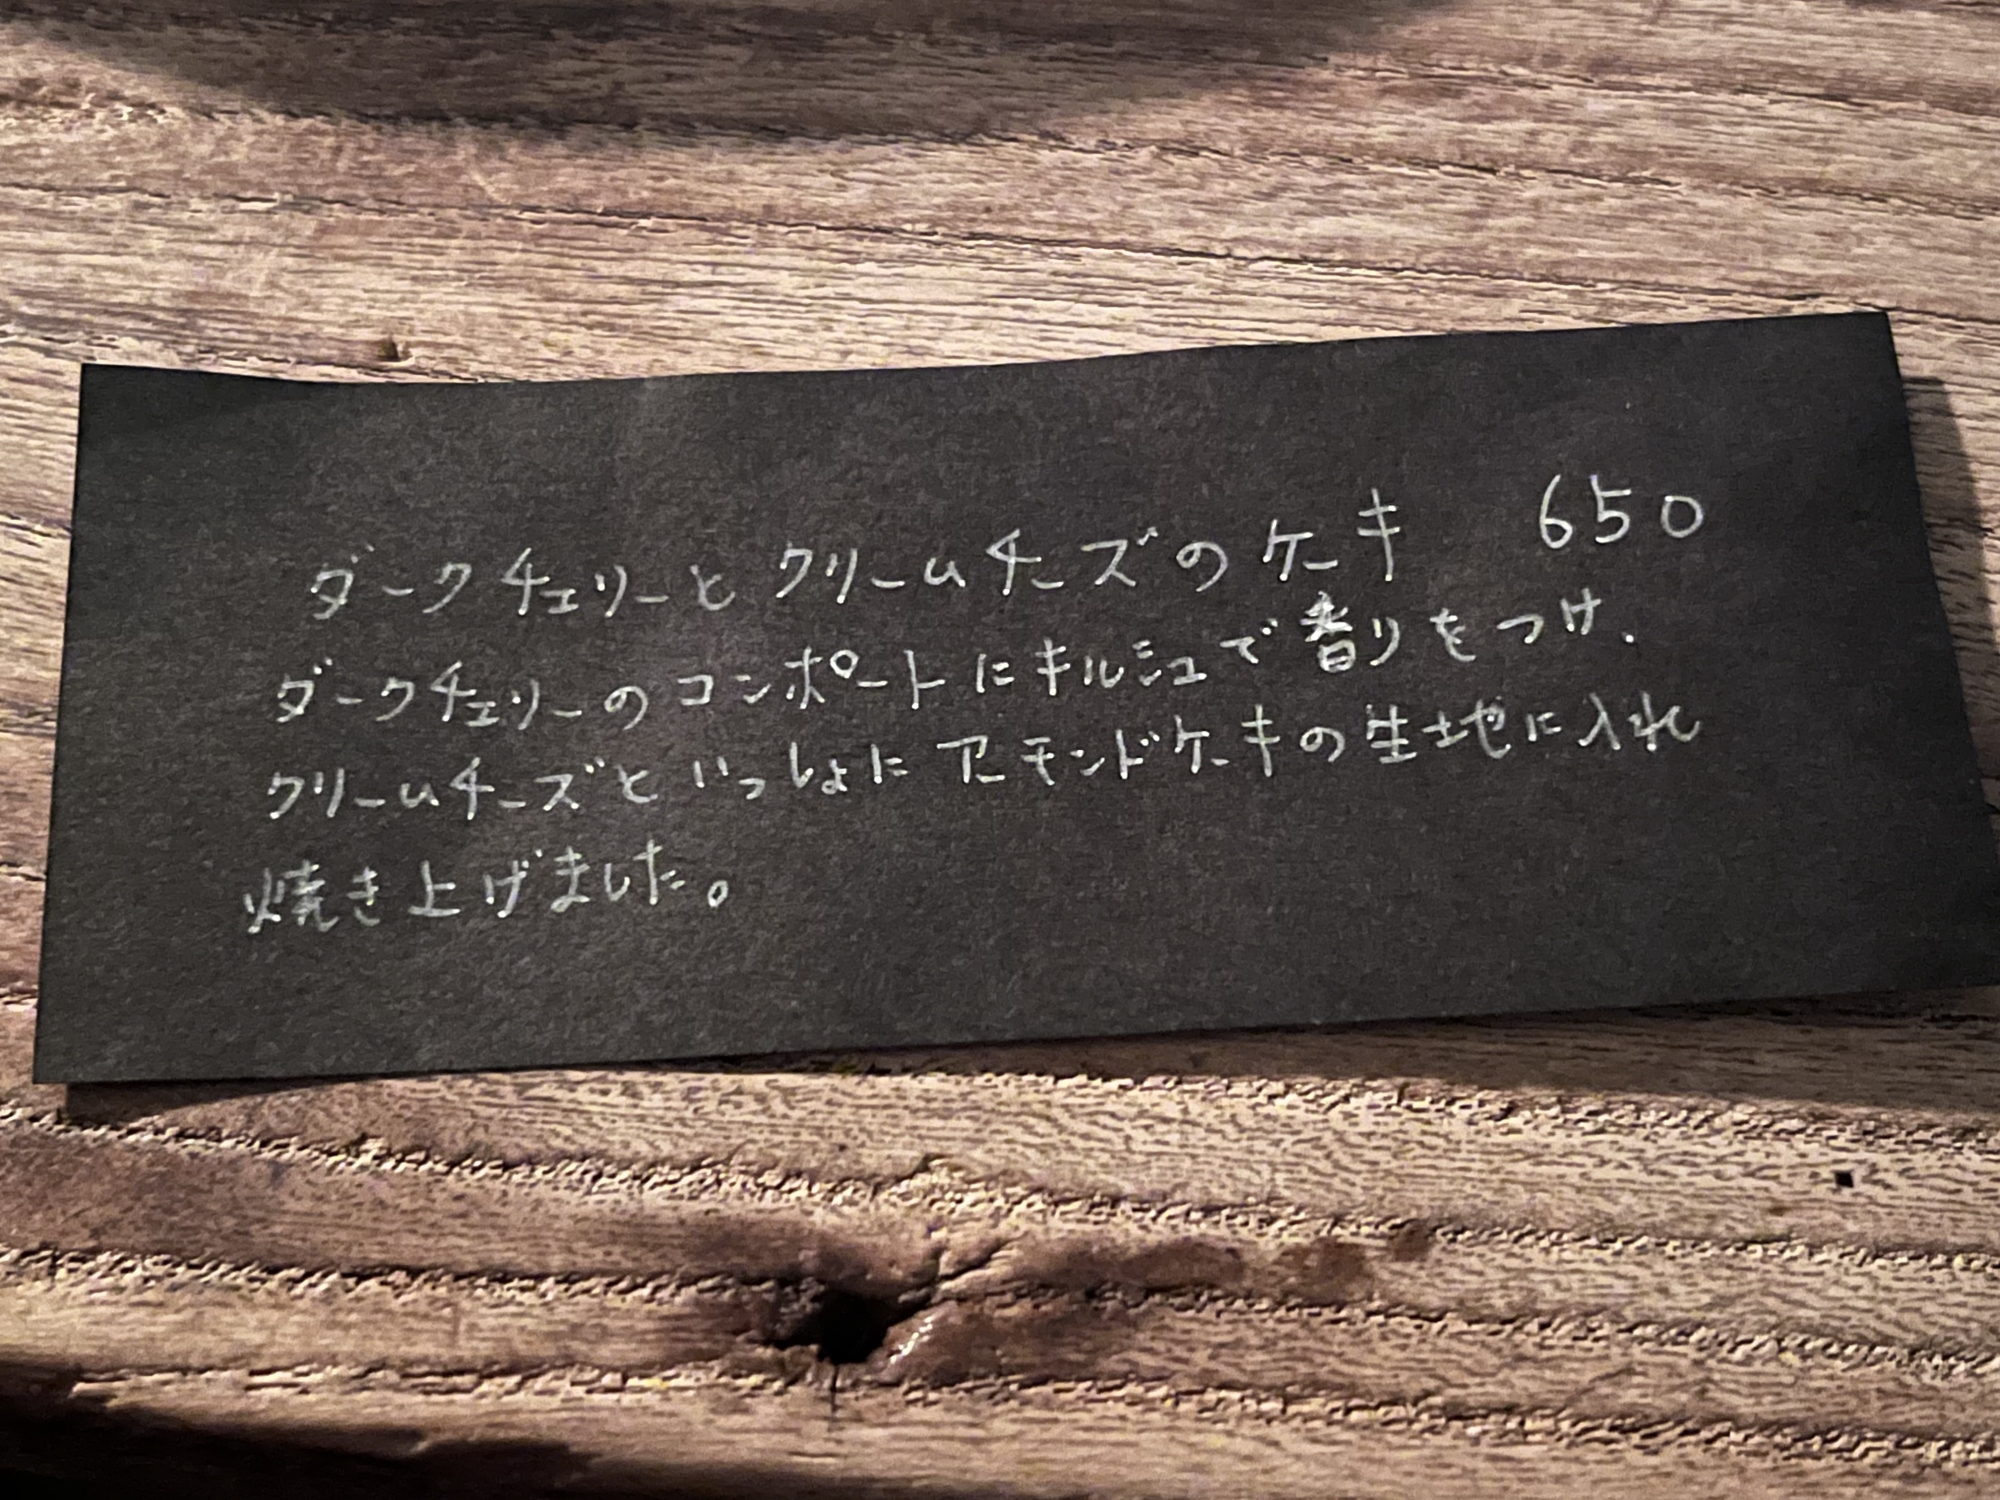 ダークチェリーとクリームチーズのケーキ 650
ダークチェリーのコンポートにキルシュで香りをつけ、
クリームチーズといっしょにアーモンドケーキの生地に入れ
焼き上げました。